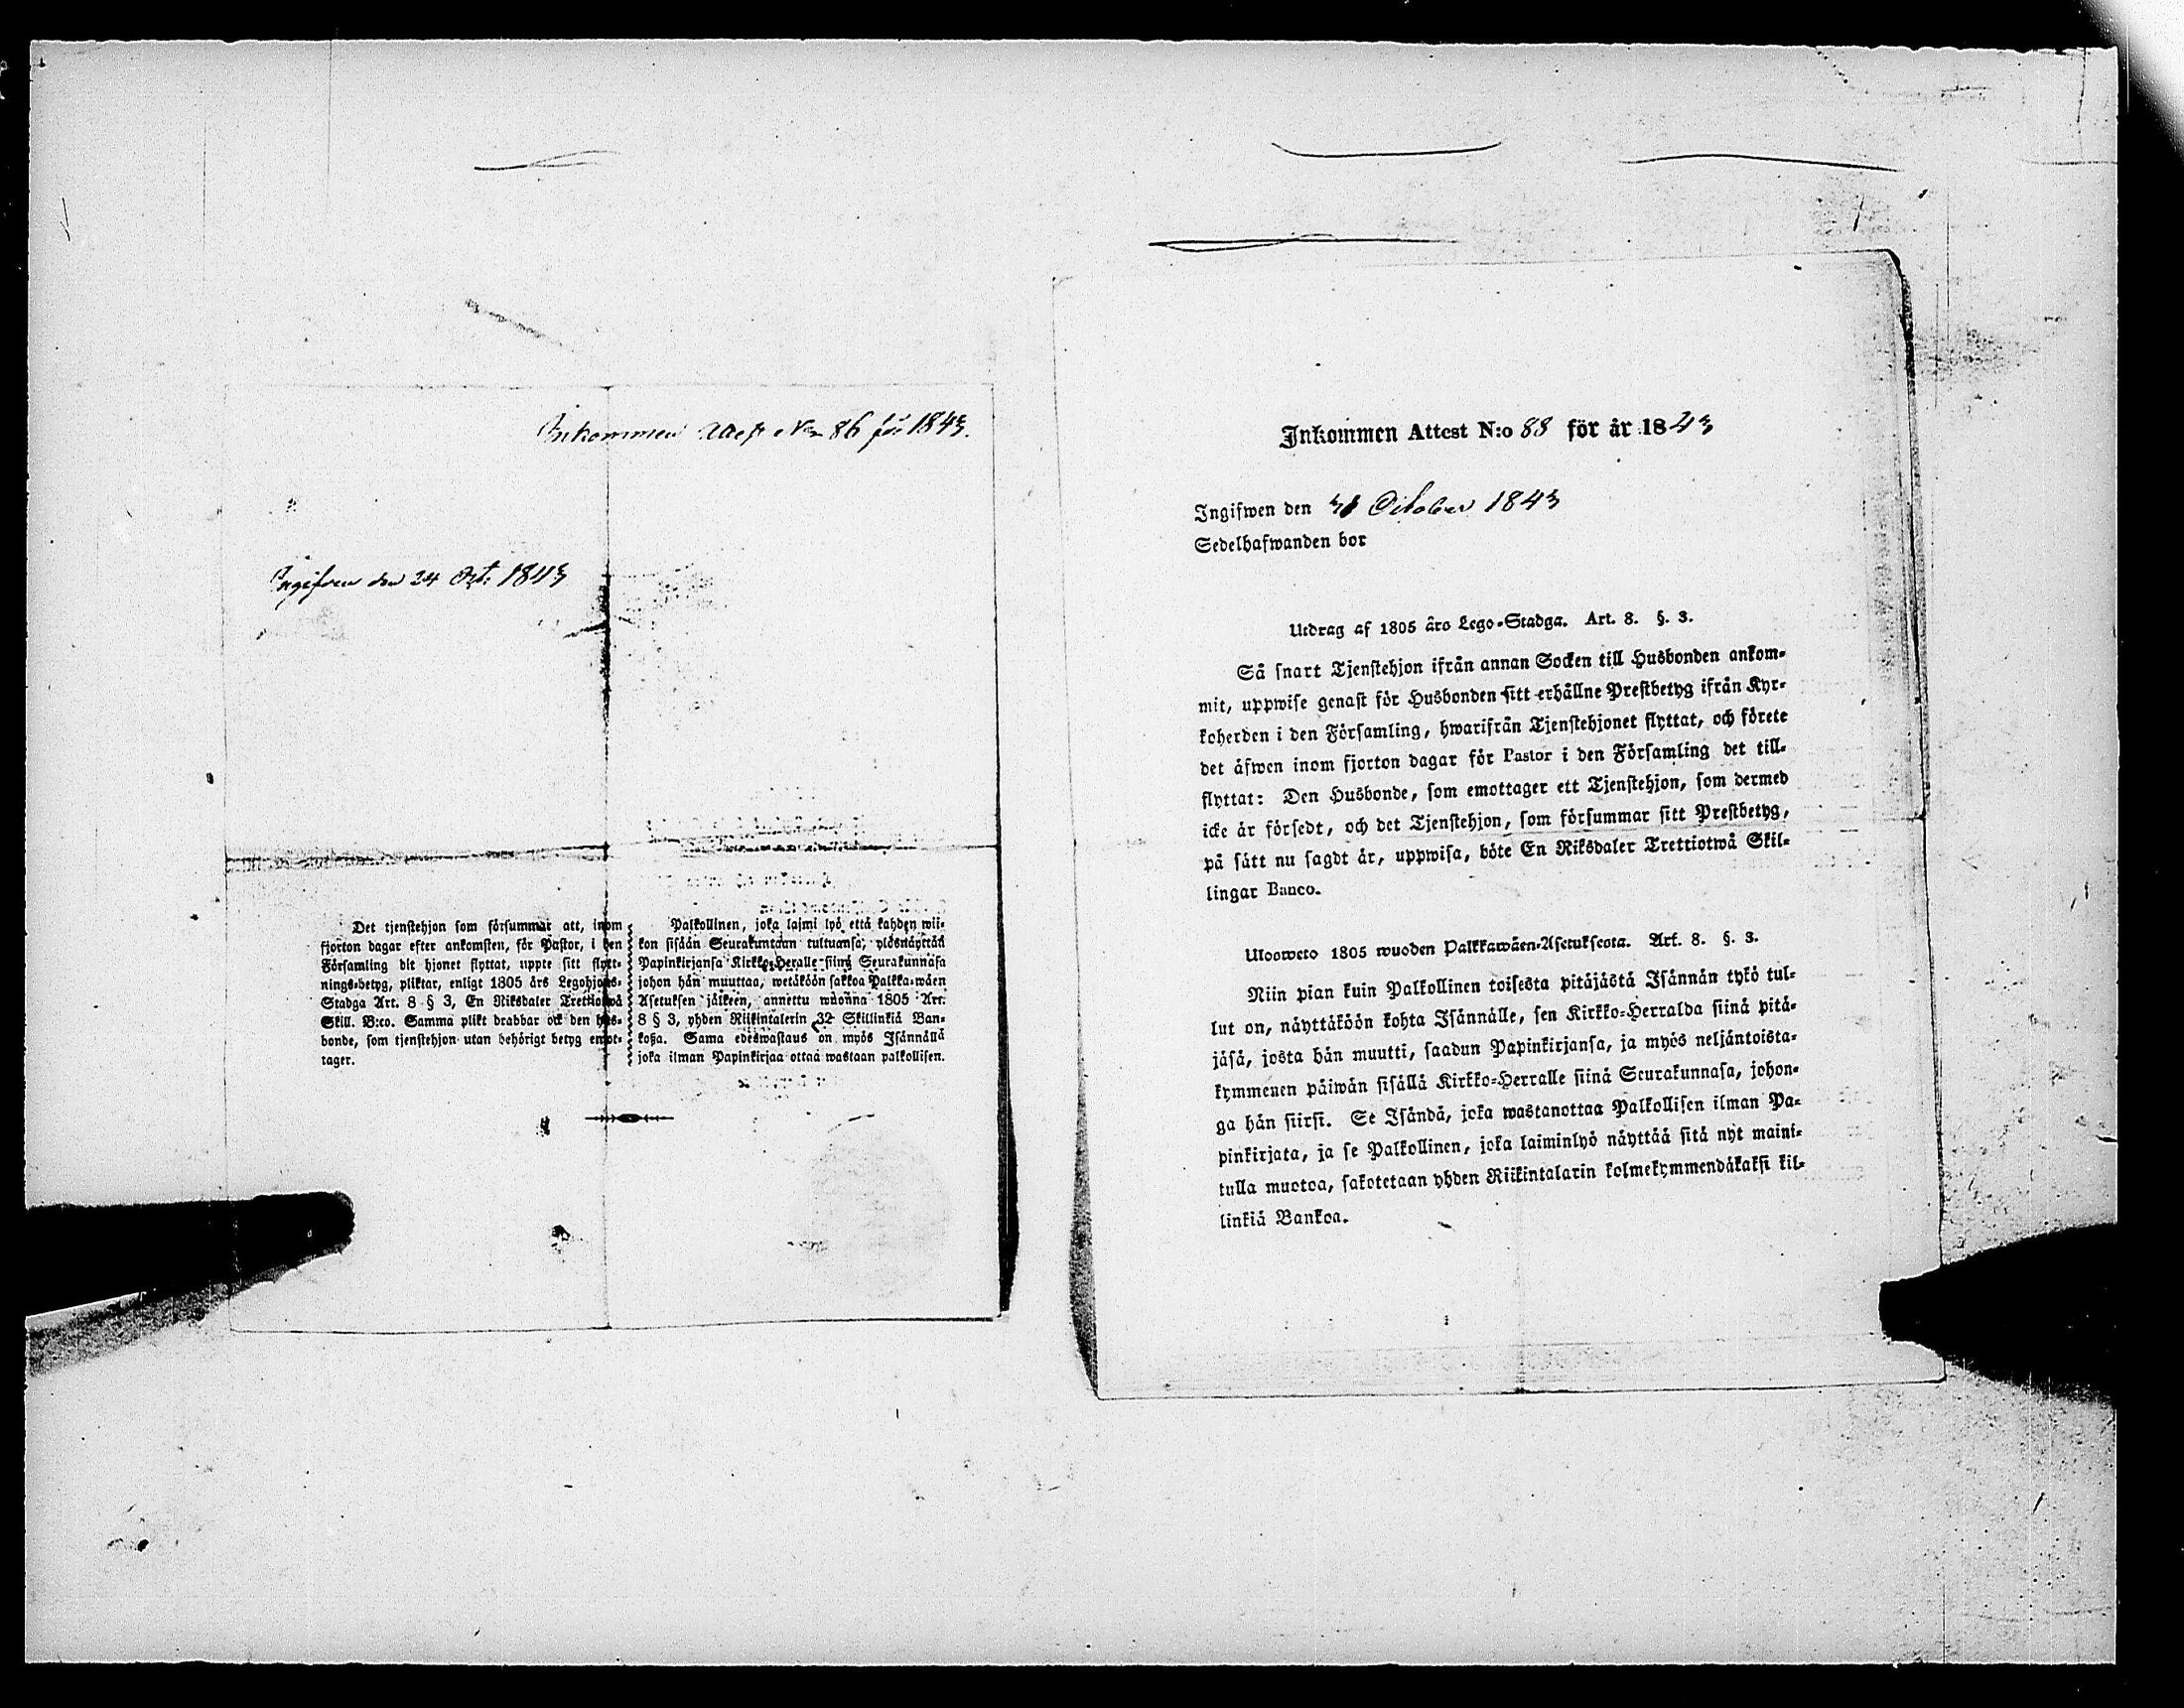 Inkommen Attest No 86 för 1843.
Ingifven den 24 Oct: 1843
Det tjenstehjon som försummar att, inom
fjorton dagar efter ankomsten, för Pastor, i den
Församling dit hjonet flyttat, uppte sitt flytt-
nings-betyg, pliktar, enligt 1805 års Legohjons-
Stadga Art. 8 § 3, En Riksdaler Trettiotwå
Skill. B:co. Samma plikt drabbar ock den hus-
bonde, som tjenstehjon utan behörigt betyg emot-
tager.
Palkollinen, joka laimi lyö että kahden wii-
kon sisään Seurakuntaan tultuansa, ylösnäyttää
Papinkirjansa Kirkko-Heralle siinä Seurakunnasa
johon hän muuttaa, wetäköön sakkoa Palkka-wäen
Asetuksen jälkeen, annettu wuonna 1805 Art.
8 § 3, yhden Riikintalerin 32 Skillinkiä Ban-
koßa. Sama edeswastaus on myös Isännällä
joka ilman Papinkirjaa ottaa wastaan palkollisen.
Inkommen Attest N:o 88 för år 1843
Ingifwen den 31 October 1843
Sedelhafwanden bor
Utdrag af 1805 års Lego-Stadga. Art. 8. §. 3.
Så snart Tjenstehjon ifrån annan Socken till Husbonden ankom-
mit, uppwise genast för Husbonden sitt erhållne Prestbetyg ifrån Kyr-
koherden i den Församling, hwarifrån Tjenstehjonet flyttat, och förete
det äfwen inom fjorton dagar för Pastor i den Församling det till-
flyttat: Den Husbonde, som emottager ett Tjenstehjon, som dermed
icke är försedt, och det Tjenstehjon, som försummar sitt Prestbetyg,
på sätt nu sagdt är, uppwisa, böte En Riksdaler Trettiotwå Skil-
lingar Banco.
Ulosweto 1805 wuoden Palkkawäen-Asetuksesta. Art. 8. §. 3.
Niin pian kuin Palkollinen toisesta pitäjästä Isännän tykö tul-
lut on, näyttäköön kohta Isännälle, sen Kirkko-Herralda siinä pitä-
jäsä, josta hän muutti, saadun Papinkirjansa, ja myös neljäntoista-
kymmenen päiwän sisällä Kirkko-Herralle siinä Seurakunnasa, johon-
ga hän siirsi. Se Isändä, joka wastanottaa Palkollisen ilman Pa-
pinkirjata, ja se Palkollinen, joka laiminlyö näyttää sitä nyt maini-
tulla muotoa, sakotetaan yhden Riikintalarin kolmekymmendäkaksi kil-
linkiä Bankoa.